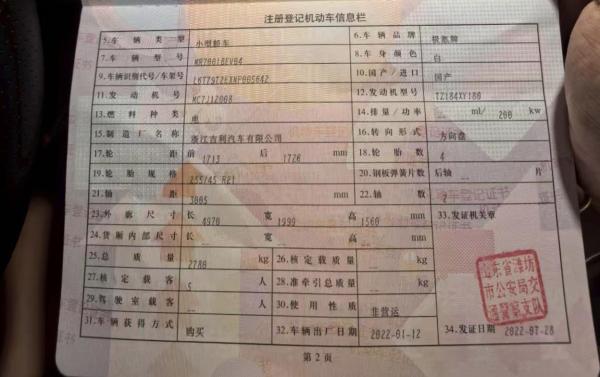 注册登记机动车信息栏
5.车辆类型 小型轿车 6.车辆品牌 极氪牌
7.车辆型号 MR7001BEV04 8.车身颜色 白
9.车辆识别代号/车架号 10.国产/进口 国产
11.发动机号 12.发动机型号 TZ184XY100
13.燃料种类 电 14.排量/功率 ml/ 200 kw
15.制造厂名称 浙江吉利汽车有限公司 16.转向形式 方向盘
17.轮距 前 1713 后 1726 mm 18.轮胎数 4
19.轮胎规格 255/45 R21 20.钢板弹簧片数 后轴 片
21.轴距 3005 mm 22.轴数 2
23.外廓尺寸 长 4970 宽 1999 高 1560 mm 33.发证机关章
24.货厢内部尺寸 长 宽 高 mm
25.总质量 2780 kg 26.核定载质量 kg
27.核定载客 5 人 28.准牵引总质量 kg
29.驾驶室载客 人 30.使用性质 非营运
31.车辆获得方式 购买 32.车辆出厂日期 2022-01-12 34.发证日期 2022-07-28
山东省潍坊
市公安局交
通警察支队
第2页